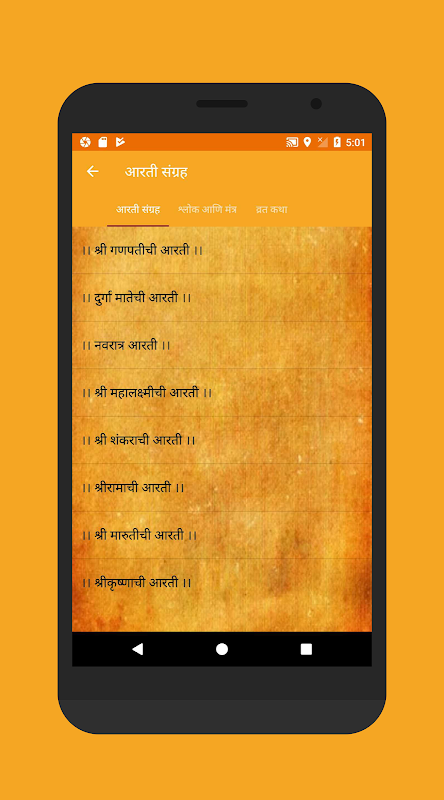 5:01
आरती संग्रह
आरती संग्रह श्लोक आणि मंत्र व्रत कथा
।। श्री गणपतीची आरती ।।
।। दुर्गा मातेची आरती ।।
।। नवरात्र आरती ।।
।। श्री महालक्ष्मीची आरती ।।
।। श्री शंकराची आरती ।।
।। श्रीरामाची आरती ।।
।। श्री मारुतीची आरती ।।
।। श्रीकृष्णाची आरती ।।